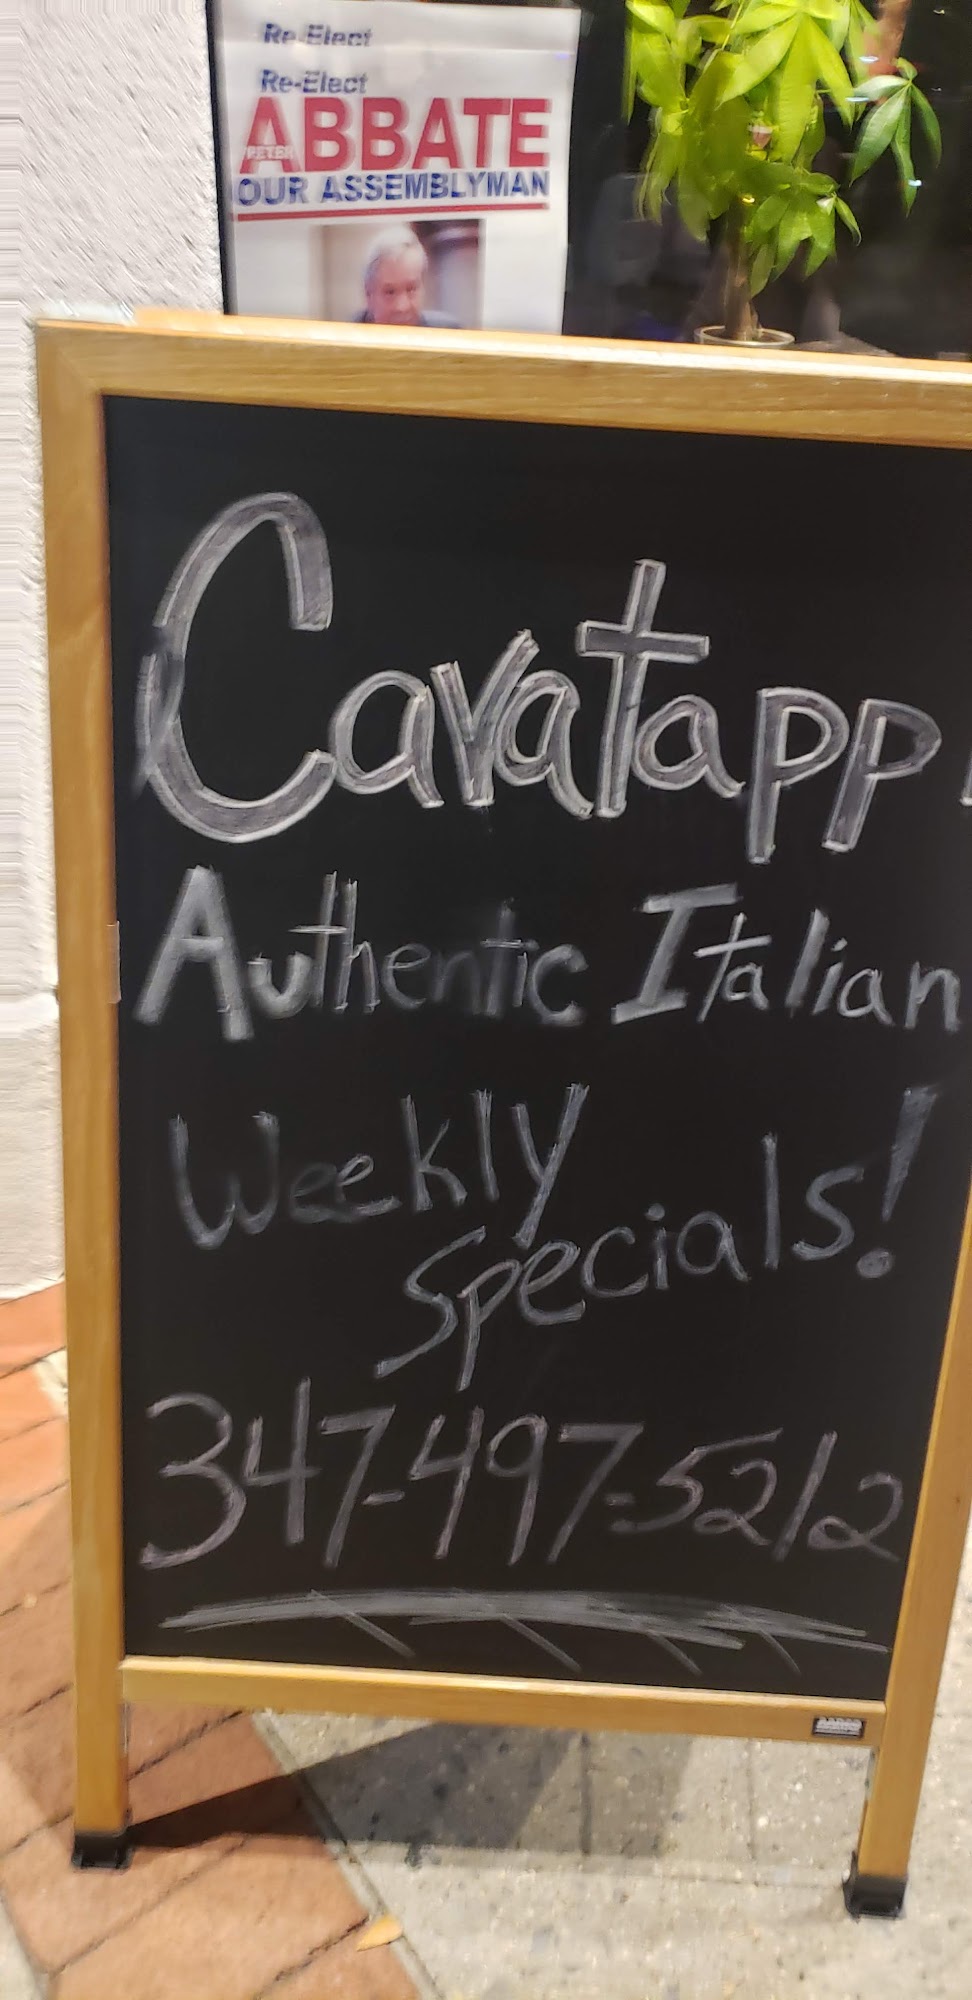 Re-Elect
Re-Elect
PETER
ABBATE
OUR ASSEMBLYMAN
Cavatapp
Authentic Italian
Weekly
Specials!
347-497-5212